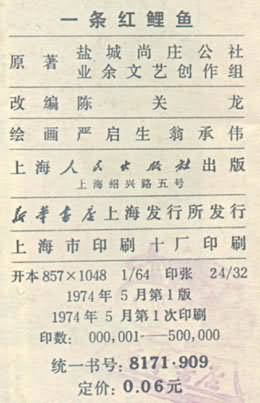 一条红鲤鱼
原著 盐城尚庄公社
业余文艺创作组
改编 陈关龙
绘画 严启生 翁承伟
上海人民出版社出版
上海绍兴路五号
新华书店上海发行所发行
上海市印刷十厂印刷
开本 857×1048 1/64 印张 24/32
1974年5月第1版
1974年5月第1次印刷
印数：000,001—500,000
统一书号：8171·909
定价：0.06元